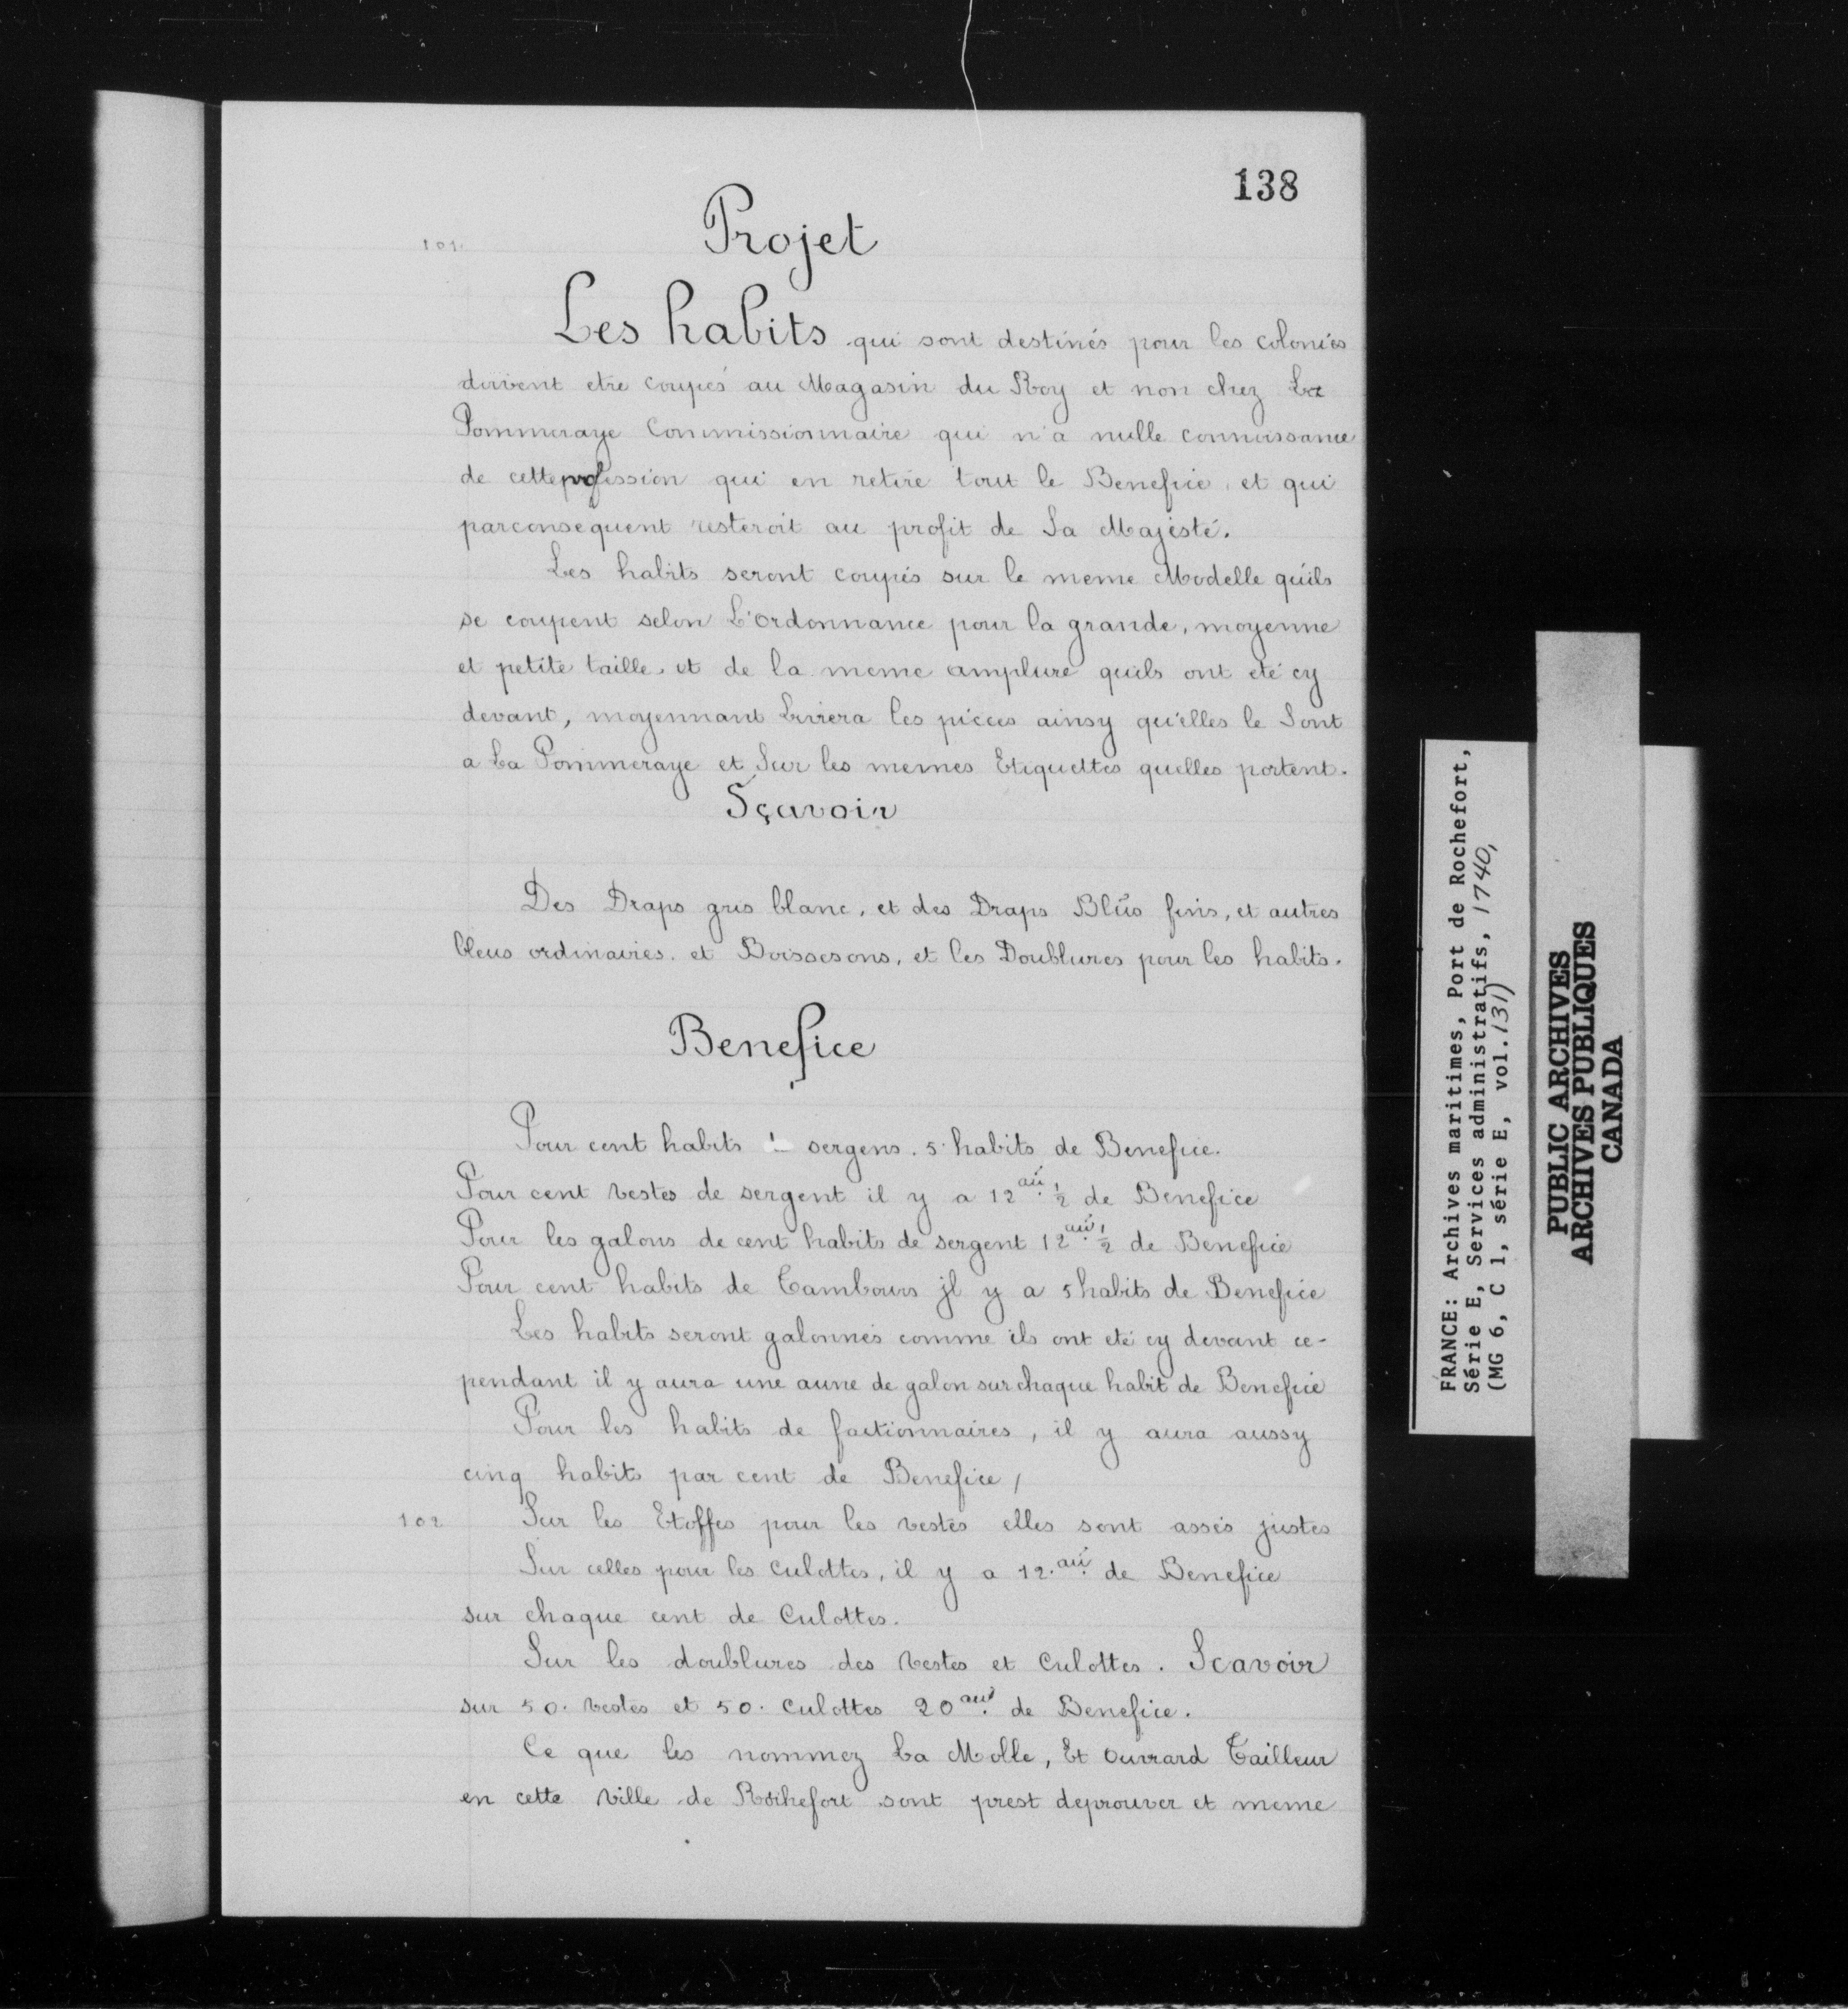 138
101.
Projet
Les habits qui sont destinés pour les colonies
doivent etre coupés au Magasin du Roy et non chez La
Pommeraye Commissionnaire qui n'a nulle connoissance
de cette profession qui en retire tout le Benefice, et qui
parconsequent resteroit au profit de Sa Majesté.
Les habits seront coupés sur le meme Modelle qu'ils
se coupent selon L'ordonnance pour la grande, moyenne
et petite taille, et de la meme amplure quils ont eté cy
devant, moyennant Livrera les pieces ainsy qu'elles le Sont
a La Pommeraye et Sur les memes Etiquettes quelles portent.
Sçavoir
Des Draps gris blanc, et des Draps Blûs fins, et autres
bleus ordinaires. et Boissesons, et les Doublures pour les habits.
Benefice
Pour cent habits sergens. 5 habits de Benefice.
Pour cent vestes de sergent il y a 12 au. 1/2 de Benefice
Pour les galons de cent habits de sergent 12 au. 1/2 de Benefice
Pour cent habits de Tambours jl y a 5 habits de Benefice
Les habits seront galonnés comme ils ont eté cy devant ce-
pendant il y aura une aune de galon sur chaque habit de Benefice
Pour les habits de factionnaires, il y aura aussy
cinq habits par cent de Benefice /
102
Sur les Etoffes pour les vestes elles sont assés justes
Sur celles pour les culottes, il y a 12. au. de Benefice
sur chaque cent de Culottes.
Sur les doublures des vestes et Culottes. Scavoir
sur 50. vestes et 50. Culottes 20 au. de Benefice.
Ce que les nommez La Molle, Et Ouvrard Tailleur
en cette ville de Rochefort sont prest deprouver et meme
FRANCE: Archives maritimes, Port de Rochefort,
Série E, Services administratifs, 1740,
(MG 6, C 1, série E, vol. 131)
PUBLIC ARCHIVES
ARCHIVES PUBLIQUES
CANADA